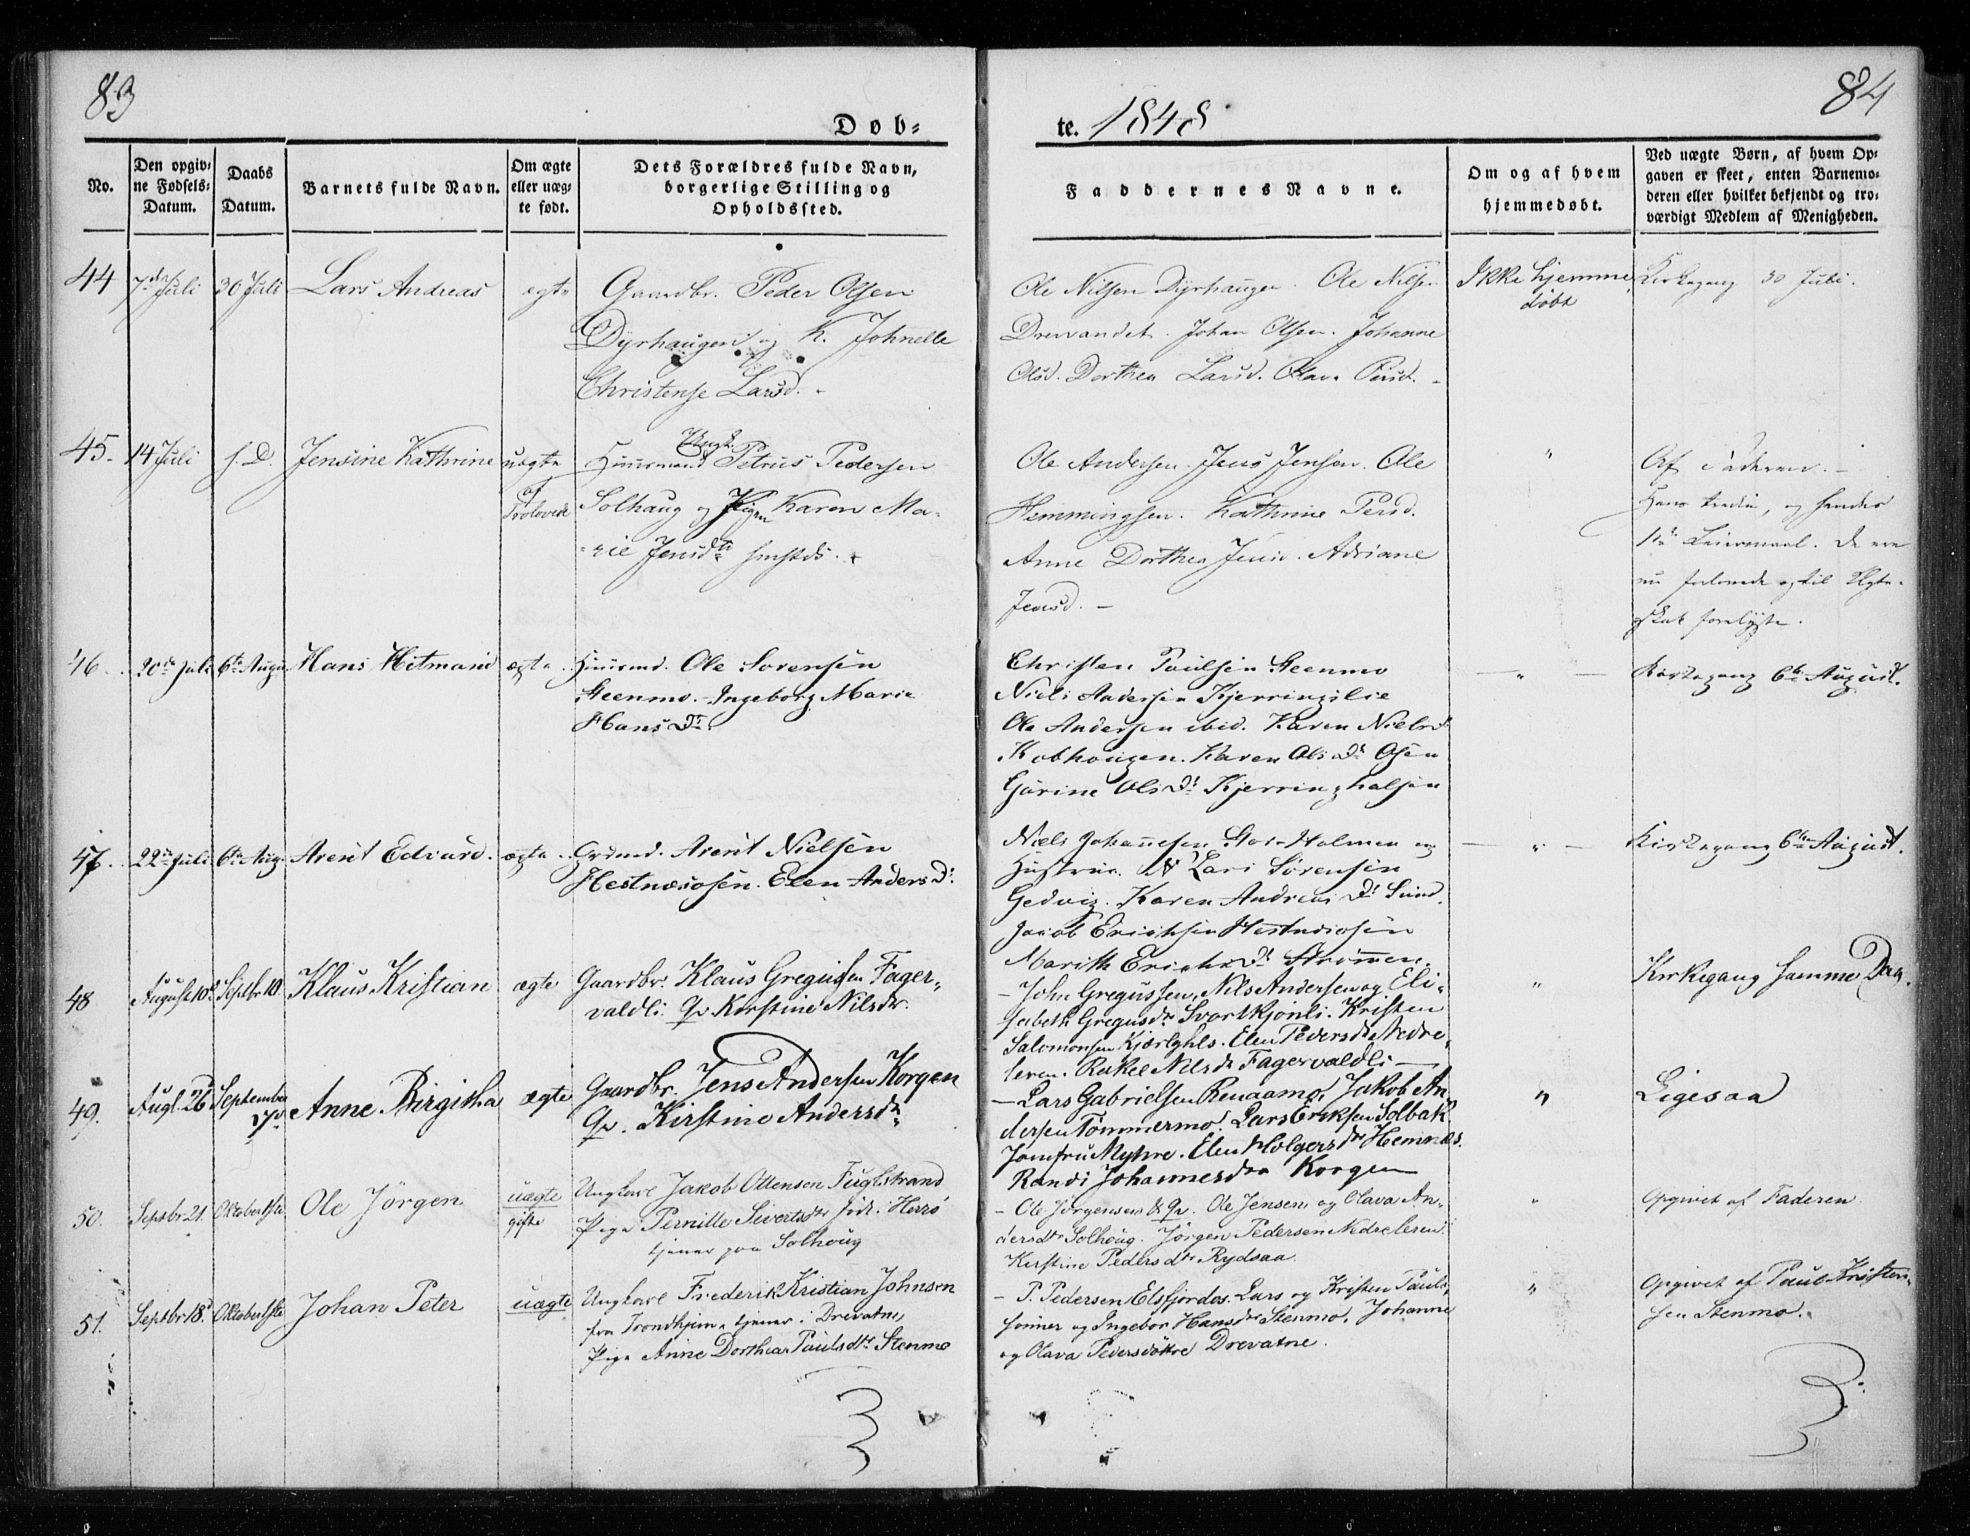 83
84
Døb-
te. 1848
No.
Den opgiv-
ne Fødsels-
Datum.
Daabs
Datum.
Barnets fulde Navn.
Om ægte
eller uæg-
te født.
Dets Forældres fulde Navn,
borgerlige Stilling og
Opholdssted.
Faddernes Navne.
Om og af hvem
hjemmedøbt.
Ved uægte Børn, af hvem Op-
gaven er skeet, enten Barnemo-
deren eller hvilket bekjendt og tro-
værdigt Medlem af Menigheden.
44
7de Juli
30 Juli
Lars Andreas
ægte
Gaardbr. Peder Olsen
Dyrhaugen og K. Johnelle
Christense Larsd. -
Ole Nilsen Dyrhaugen. Ole Nilsen
Drevvandet. Johan Olsen. Johanne
Olsd. Dorthea Larsd. Olava Persd. -
Ikke hjemme
døbt
Kirkegang 30 Juli.
45.
14 Juli
s. D.
Jensine Kathrine
uægte
af
Trolovede
Ungk.
Huusmand Petrus Pedersen
Solhaug og Pigen Karen Ma-
-rie Jensdtr
Ole Andersen. Jens Jensen. Ole
Hemmingsen. Kathrine Persd.
Anne Dorthea Jensd. Adriane
Jensd. -
"
Af Faderen. -
Hans tredie, og hendes
1ste Leiermaal. De ere
nu forlovede og til Ægte-
skab forelyste.
46.
20de Juli
6te Augu
Hans Hitmann
ægte.
Huusmd. Ole Sørensen
Steenmo. - Ingeborg Marie
Hans Dr.
Christen Paulsen Steenmo
Niels Andersen Kjerringlie
Ole Andersen ibid. Karen Nielsd
Kobhougen. Karen Ols Dr Osen
Gurine Ols Dr Kjerringhalsen
"
Kirkegang 6te August.
47.
22de Juli
6te Aug.
Arent Edvard.
ægte.
Grdmd. Arent Nielsen
Hestnæsosen. Elen Anders Dr.
Niels Johannesen Holmen og
Hustrue. Lars Sørensen
Karen Andreas Dr Sund.
Jacob Erichsen Hestnesosen
Marith Erichs Dr Strømmen.
"
Kirkegang 6te August.
48
August 10d
Septbr 10
Klaus Kristian
ægte
Gaardbr. Klaus Gregussen Fager-
valdli Qv Kirstine Nilsdtr.
- John Gregussen, Nils Andersen og Eli-
sabeth Gregusdtr Svartkjønli. Kristen
Salomonsen Kjærlghls. Elen Pedersdtr Nedre-
leren. Rakel Nilsdtr Fagervaldli -
"
Kirkegang samme Dag.
49.
Augt. 26
September
17de
Anne Birgitha
ægte
Gaardbr. Jens Andersen Korgen
Qv. Kirstine Andersdtr
- Lars Gabrielsen Renaamo, Jakob An-
dersen Tømmermo. Lars Eriksen Solbak
Jomfru Myhre. Elen Holgersdtr Hemnæs.
Randi Johannesdtr Korgen
"
Ligesaa
50.
Septbr 21.
Oktober 1ste
Ole Jörgen
uægte
gifte
Ungkarl Jakob Ottensen Fuglstrand
Pige Pernille Sivertsdtr födt i Herrö
tjener paa Solhoug
- Ole Jörgensen & Qv. Ole Jensen, og Olava An-
dersdtr Solhoug. Jörgen Pedersen Nedreleren.
Kirstine Pedersdtr Rydsaa.
"
Opgivet af Faderen
51.
Septbr 18d
Oktober 1ste
Johan Peter
uægte
Ungkarl Frederik Kristian Johnsen
fra Trondhjem, tjener i Drevatne,
Pige Anne Dorthea Paulsdtr Stenmo
- P. Pedersen Elsfjordos. Lars og Kristen Pauls-
sönner og Ingebor Hansdtr Stenmo, Johanne
og Olava Pedersdöttre Drevatne.
"
Opgivet af Paul Kristen-
sen Stenmo.